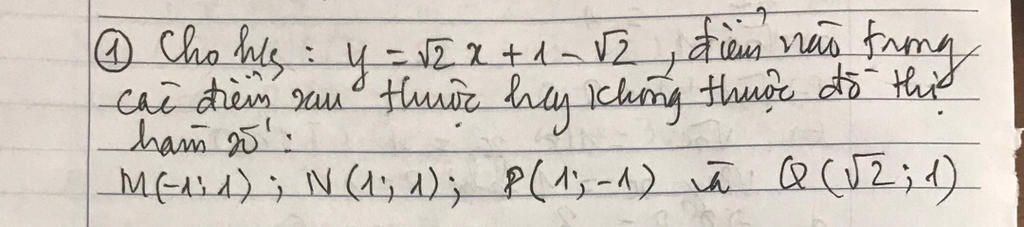 ① Cho h/s : y = √2 x + 1 - √2 , điểm nào trong
các điểm sau thuộc hay không thuộc đồ thị
hàm số :
M(-1; 1) ; N(1; 1) ; P(1; -1) và Q(√2; 1)